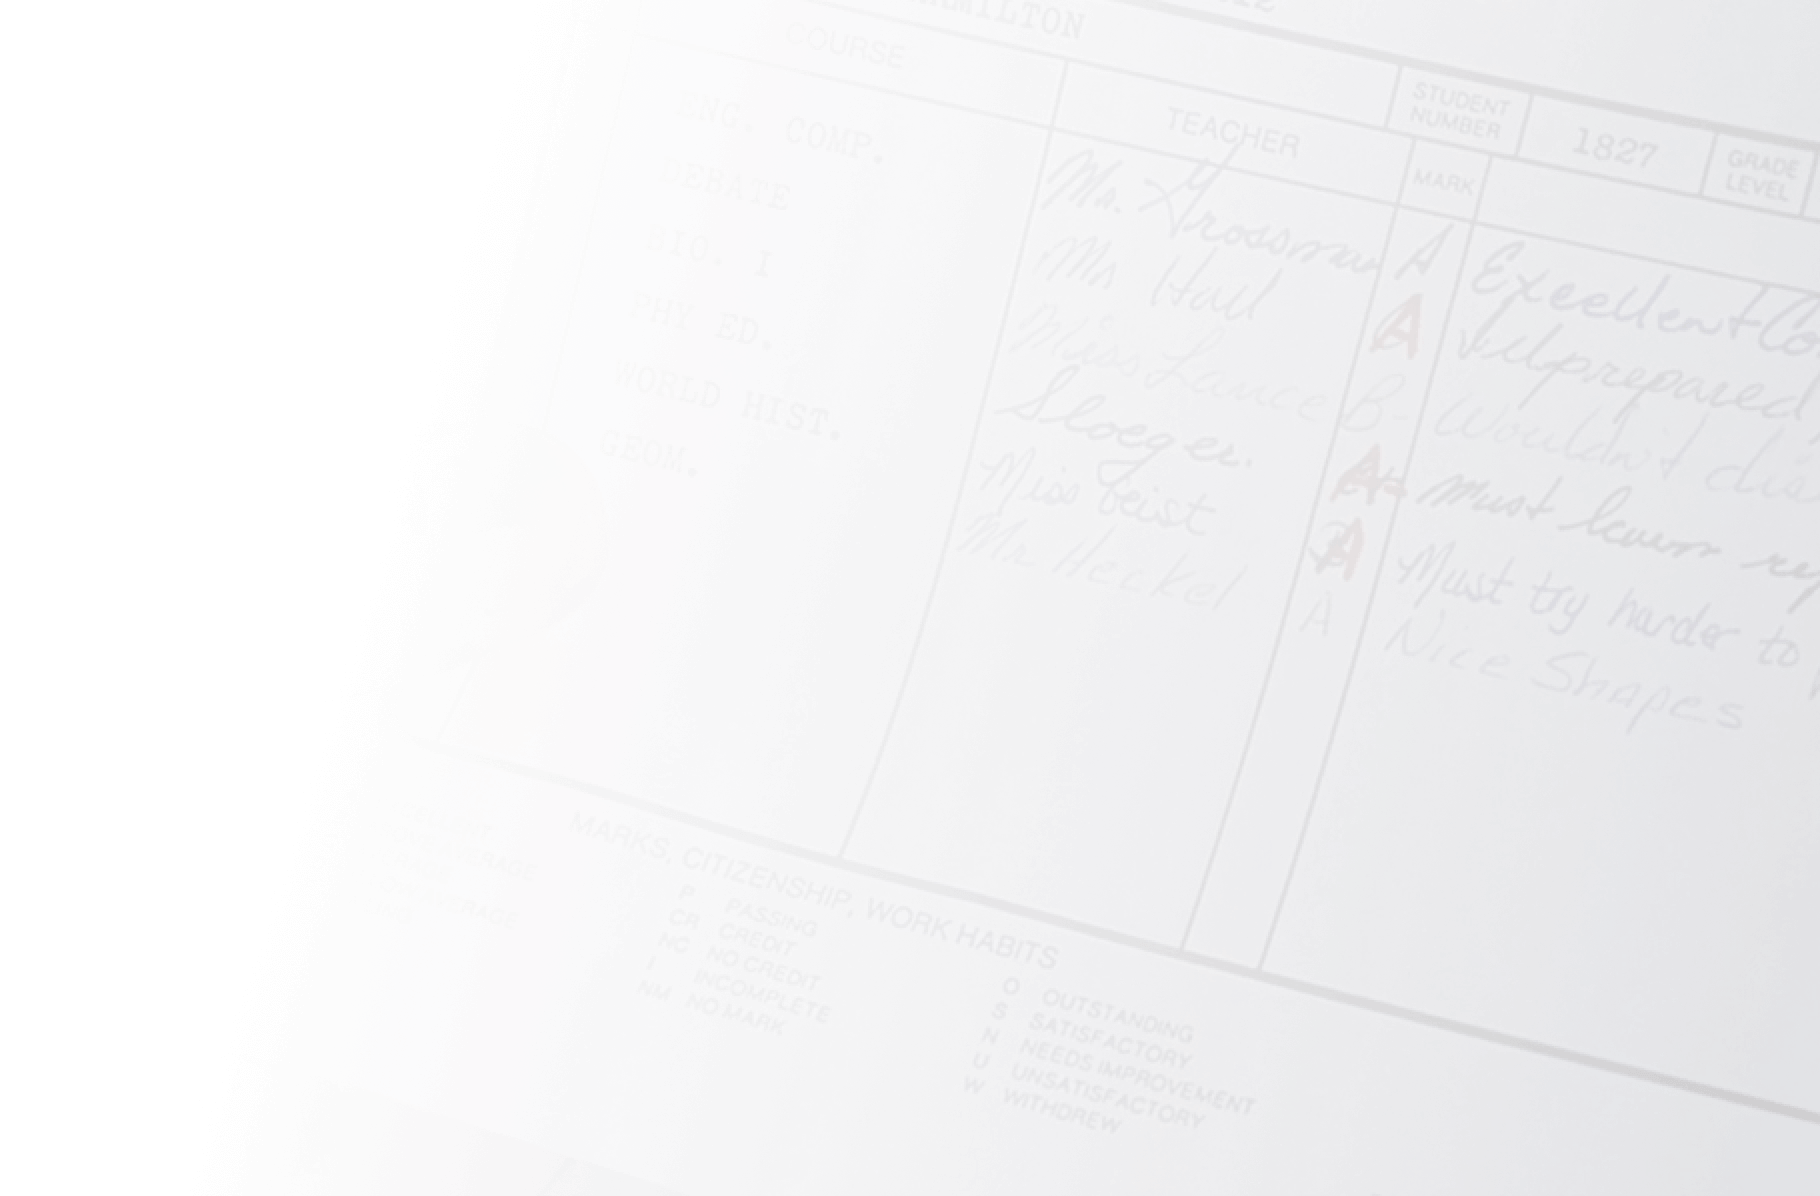 HAMILTON
COURSE TEACHER MARK STUDENT NUMBER 1827 GRADE LEVEL
ENG. COMP. Mr. Grossman A Excellent Co
DEBATE Mr Hall A Well prepared
BIO. I Miss Lance B- Wouldn't dis
PHY ED. Sloeger. A must learn
WORLD HIST. Miss Geist A Must try harder to
GEOM. Mr. Heckel A Nice Shapes
MARKS, CITIZENSHIP, WORK HABITS
P PASSING
CR CREDIT
NC NO CREDIT
I INCOMPLETE
NM NO MARK
O OUTSTANDING
S SATISFACTORY
N NEEDS IMPROVEMENT
U UNSATISFACTORY
W WITHDREW